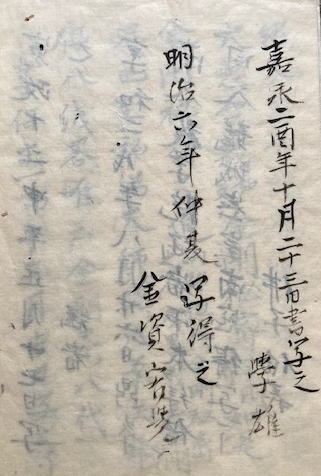 嘉永二酉年十月二十三日書写之
學雄
明治六年仲夏 写得之
金資宥覺